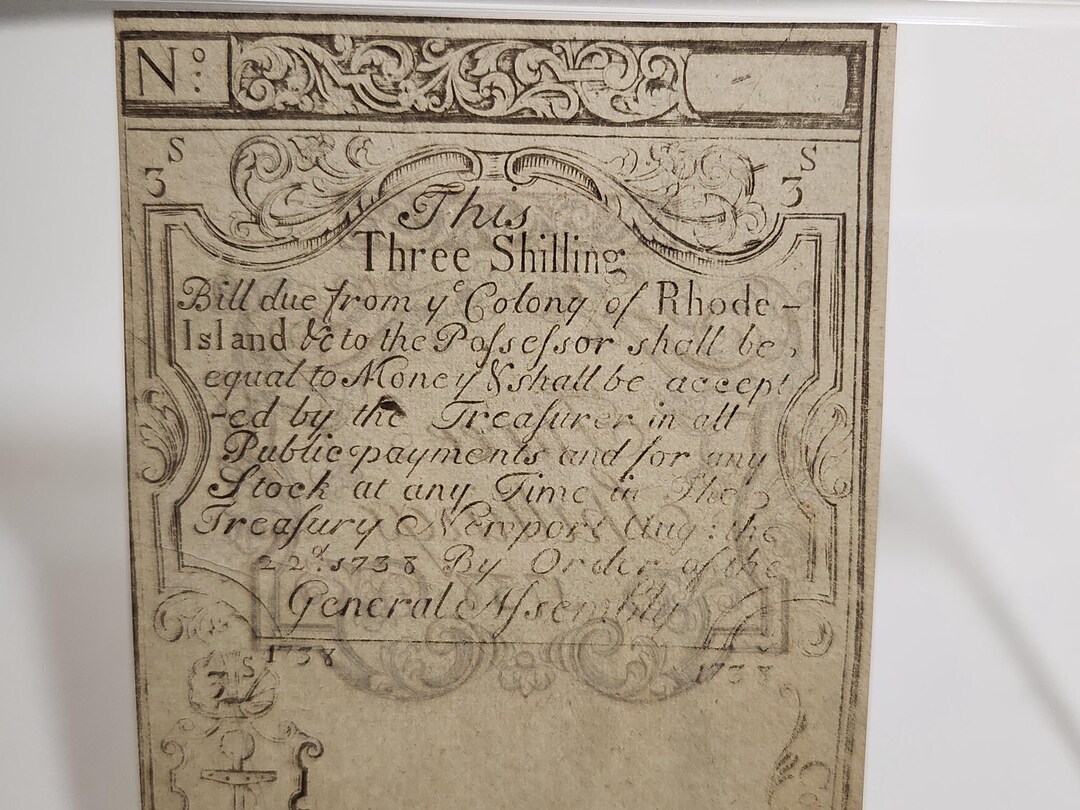 Nº:
3 S
S 3
This
Three Shilling
Bill due from yᵉ Colony of Rhode-
Island &c to the Poſseſsor shall be,
equal to Money & shall be accept
-ed by the Treaſurer in all
Public payments and for any
Stock at any Time in The
Treaſury Newport Aug: the
22ᵈ. 1738 By Order of the
General Aſsembly
1738
1738
3 S